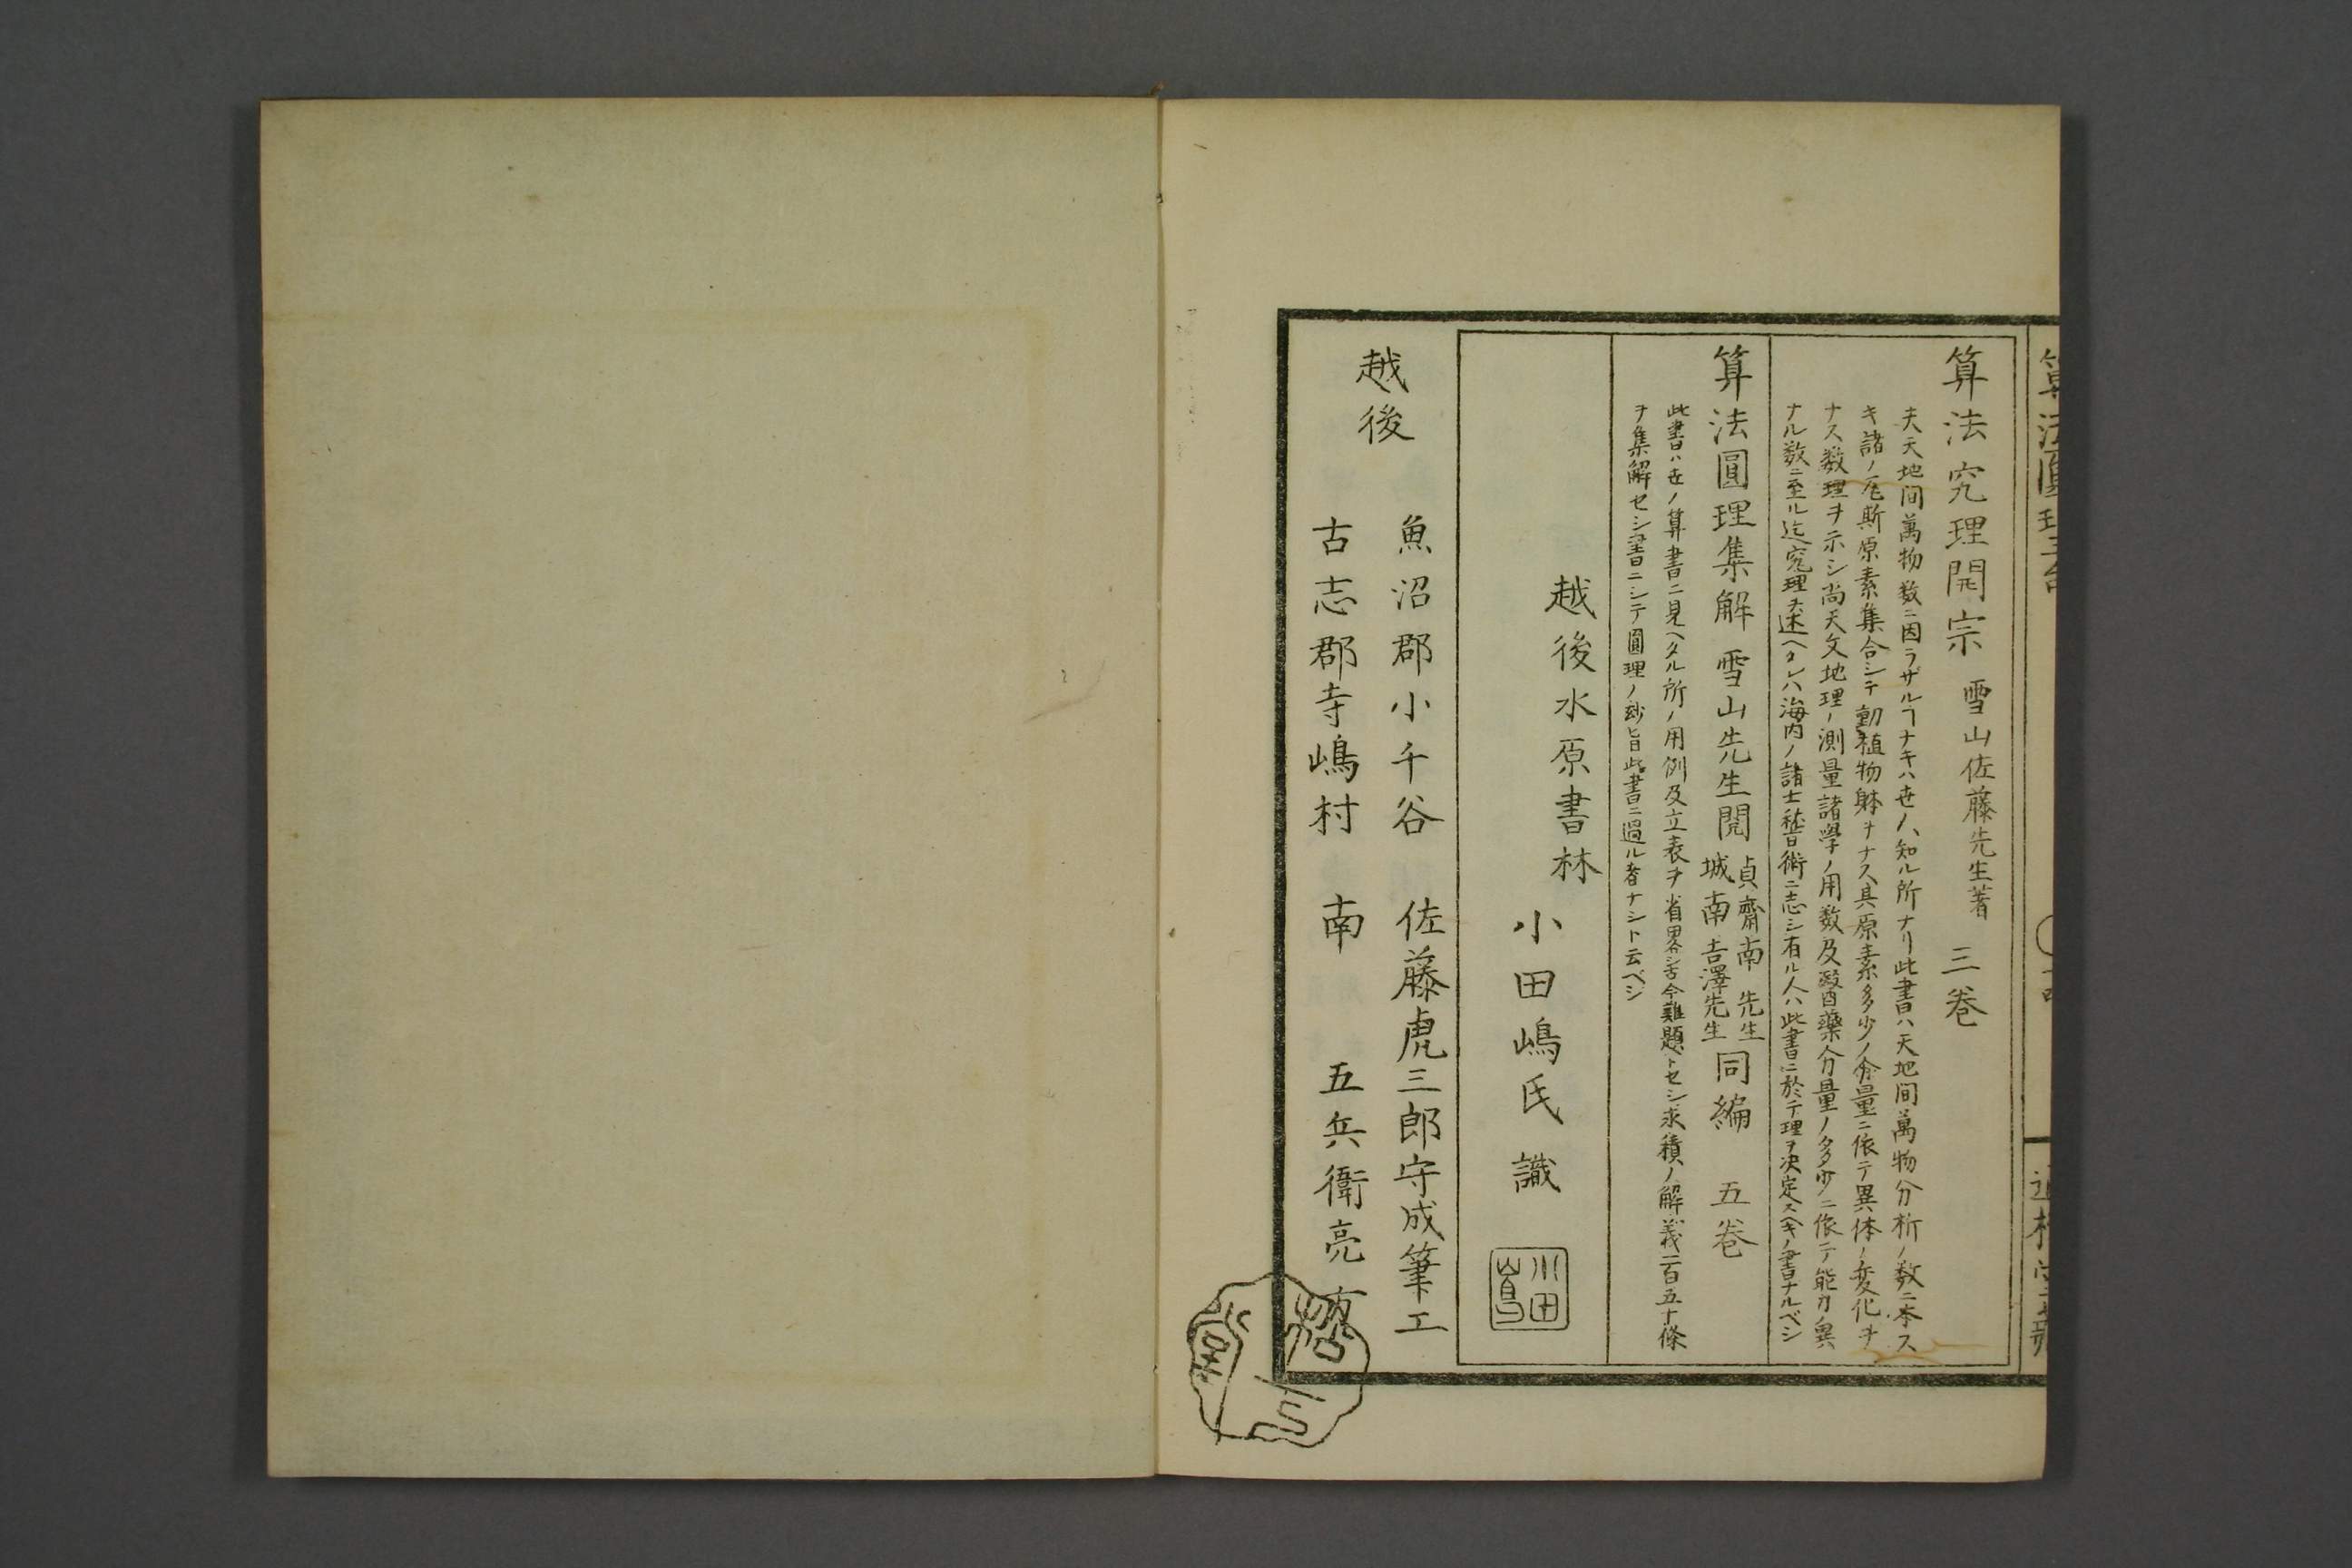 算法圓理三台
算法究理開宗 雪山佐藤先生著 三巻
夫天地间萬物数ニ因ラザルヿナキハ世ノ人知ル所ナリ此書ハ天地间萬物分析ノ数ニ本ス
キ諸ノ元斯原素集合シテ動植物躰ヲナス其原素多少ノ分量ニ依テ異体ノ変化ヲ
ナス数理ヲ示シ尚天文地理ノ測量諸學ノ用数及醫藥分量ノ多少ニ依テノ能力異
ナル数ニ至ル迄究理ヲ述ヘタレハ海内ノ諸士秇術ニ志シ有ル人ハ此書ニ於テ理ヲ决定スヘキノ書ナルベシ
算法圓理集解 雪山先生閲 貞齋南先生 城南吉澤先生 同編 五巻
此書ハ世ノ算書ニ見ヘタル所ノ用例及立表ヲ省畧シ古今難題トセシ求積ノ解義一百五十條
ヲ集解セシ書ニシテ圓理ノ玅旨此書ニ過ル者ナシト云ベシ
越後水原書林
小田嶋氏識
小田嶌
越後
魚沼郡小千谷 佐藤虎三郎守成筆工
古志郡寺嶋村 南 五兵衛亮方